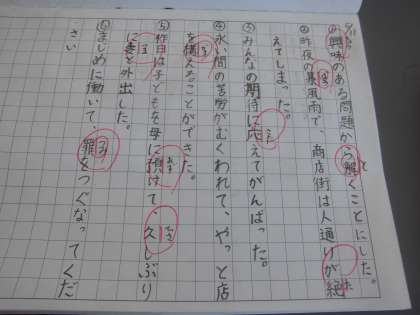 ①興味のある問題から解くことにした。
②昨夜の暴風雨で、商店街は人通りが絶
えてしまった。
③みんなの期待に応えてがんばった。
④永い間の苦労がむくわれて、やっと店
を構えることができた。
⑤昨日は子どもを母に預けて、久しぶり
に妻と外出した。
⑥まじめに働いて、罪をつぐなってくだ
さい